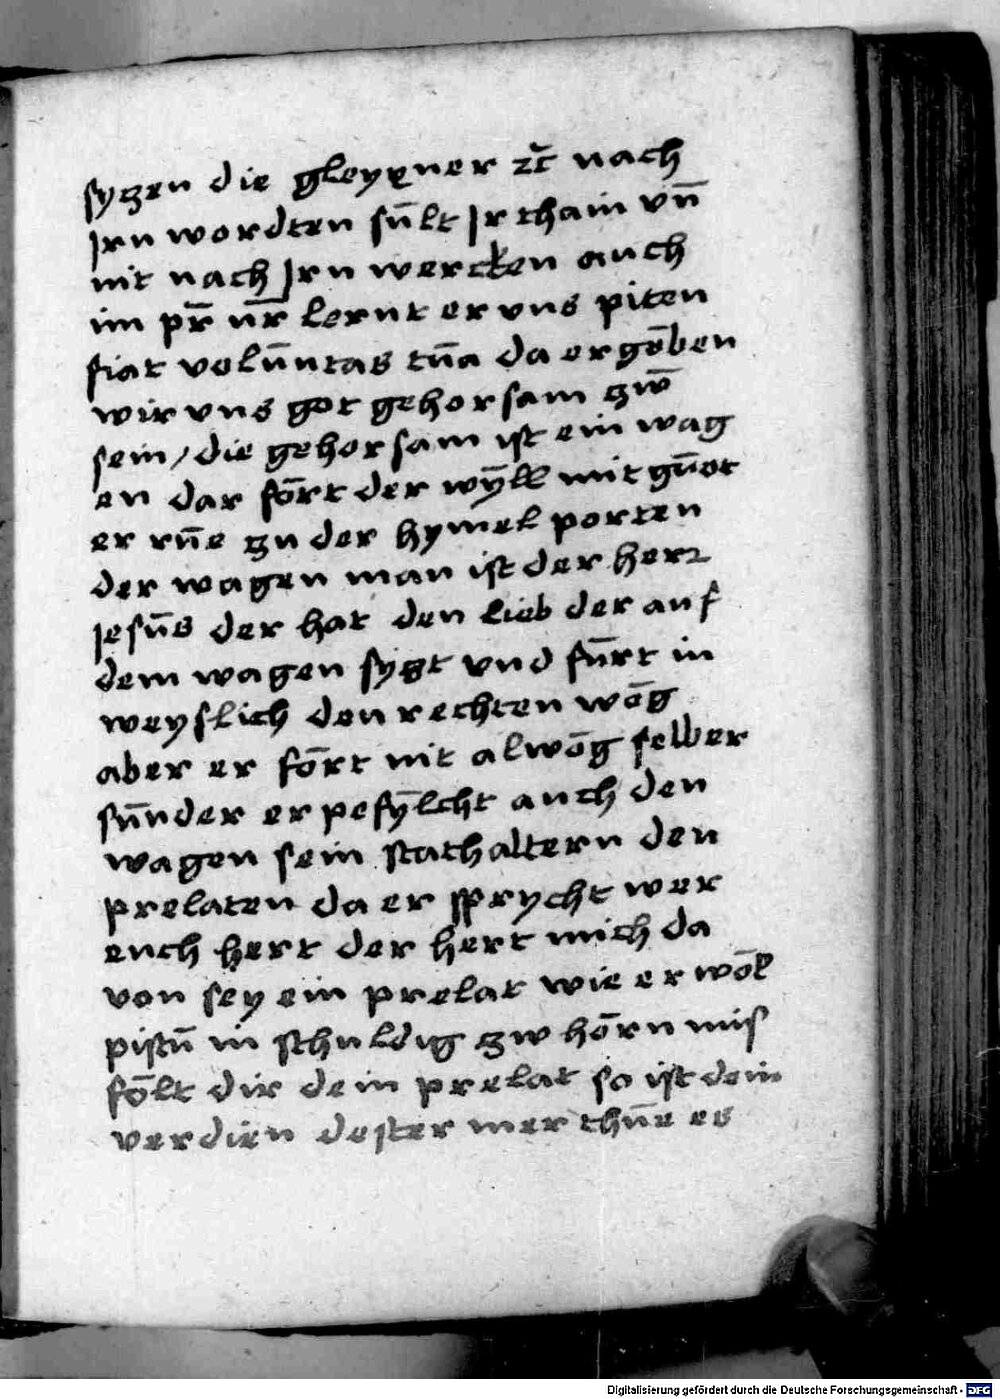 syzen die gleyxner zc̄ nach
Jrn wordten sūlt Jr thain vn̄
nit nach Jrn wercken auch
im pr̄ nr̄ lernt er vns piten
fiat volūntas tūa da ergōben
wir vns got gehorsam zw̄
sein / die gehorsam ist ein wag
en dar fōrt der wȳll mit gūot
er rūe zu der hymel porten
der wagen man ist der herr
Jesūs der hat den lieb der auf
dem wagen sytzt vnd fūrt in
weyslich den rechten wōg
aber er fōrt nit alwōg selber
sūnder er pefȳlcht auch den
wagen sein stathaltern den
prelaten da er sprycht wer
euch hert der hert mich da
von sey ein prelat wie er wōl
pistū in schuldig zw hōrn mis
fōlt dir dein prelat so ist dein
verdien dester mer thūe es
Digitalisierung gefördert durch die Deutsche Forschungsgemeinschaft - DFG